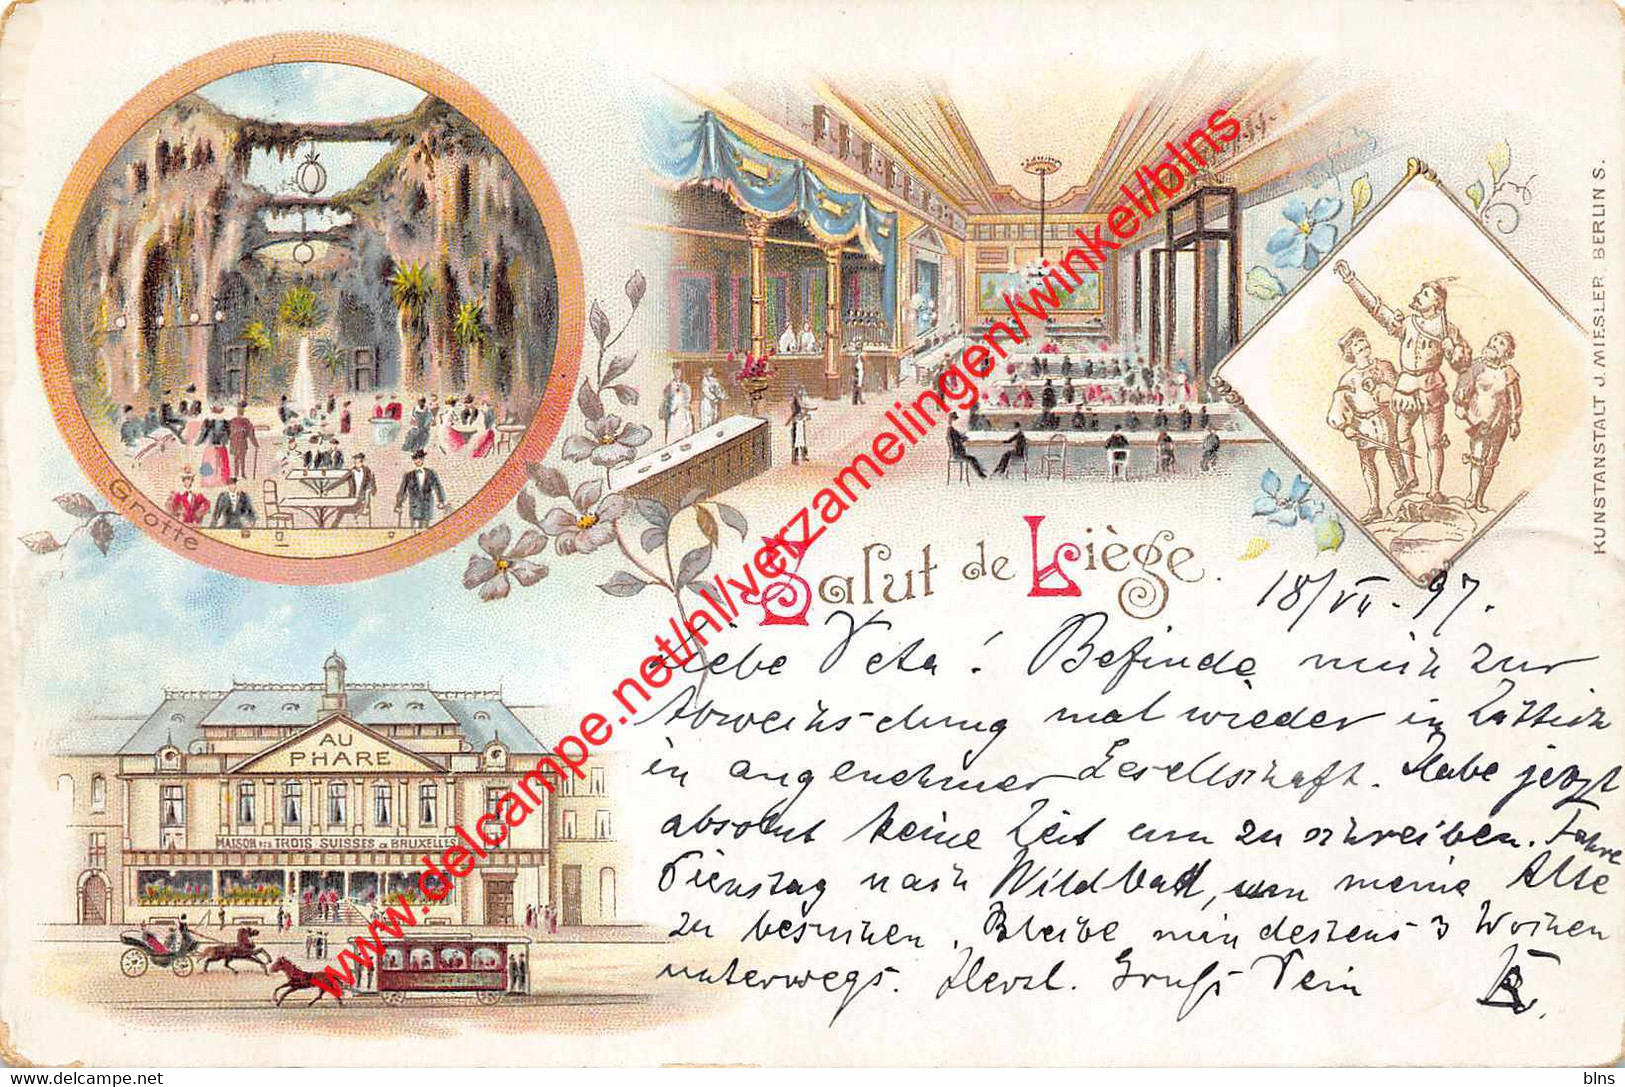 Grotte
AU
PHARE
MAISON DES TROIS SUISSES A BRUXELLES
KUNSTANSTALT J. MIESLER. BERLIN S.
Salut de Liège.
18/VII. 97.
Liebe Veta! Befinde mich zur
Abwechslung mal wieder in Lüttich
in angenehmer Gesellschaft. Habe jetzt
absolut keine Zeit um zu schreiben. Fahre
Dienstag nach Wildbad, um meine Alte
zu besuchen. Bleibe mindestens 3 Wochen
unterwegs. Herzl. Gruß Dein
www.delcampe.net/nl/verzamelingen/winkel/blns
www.delcampe.net/nl/verzamelingen/winkel/blns
blns